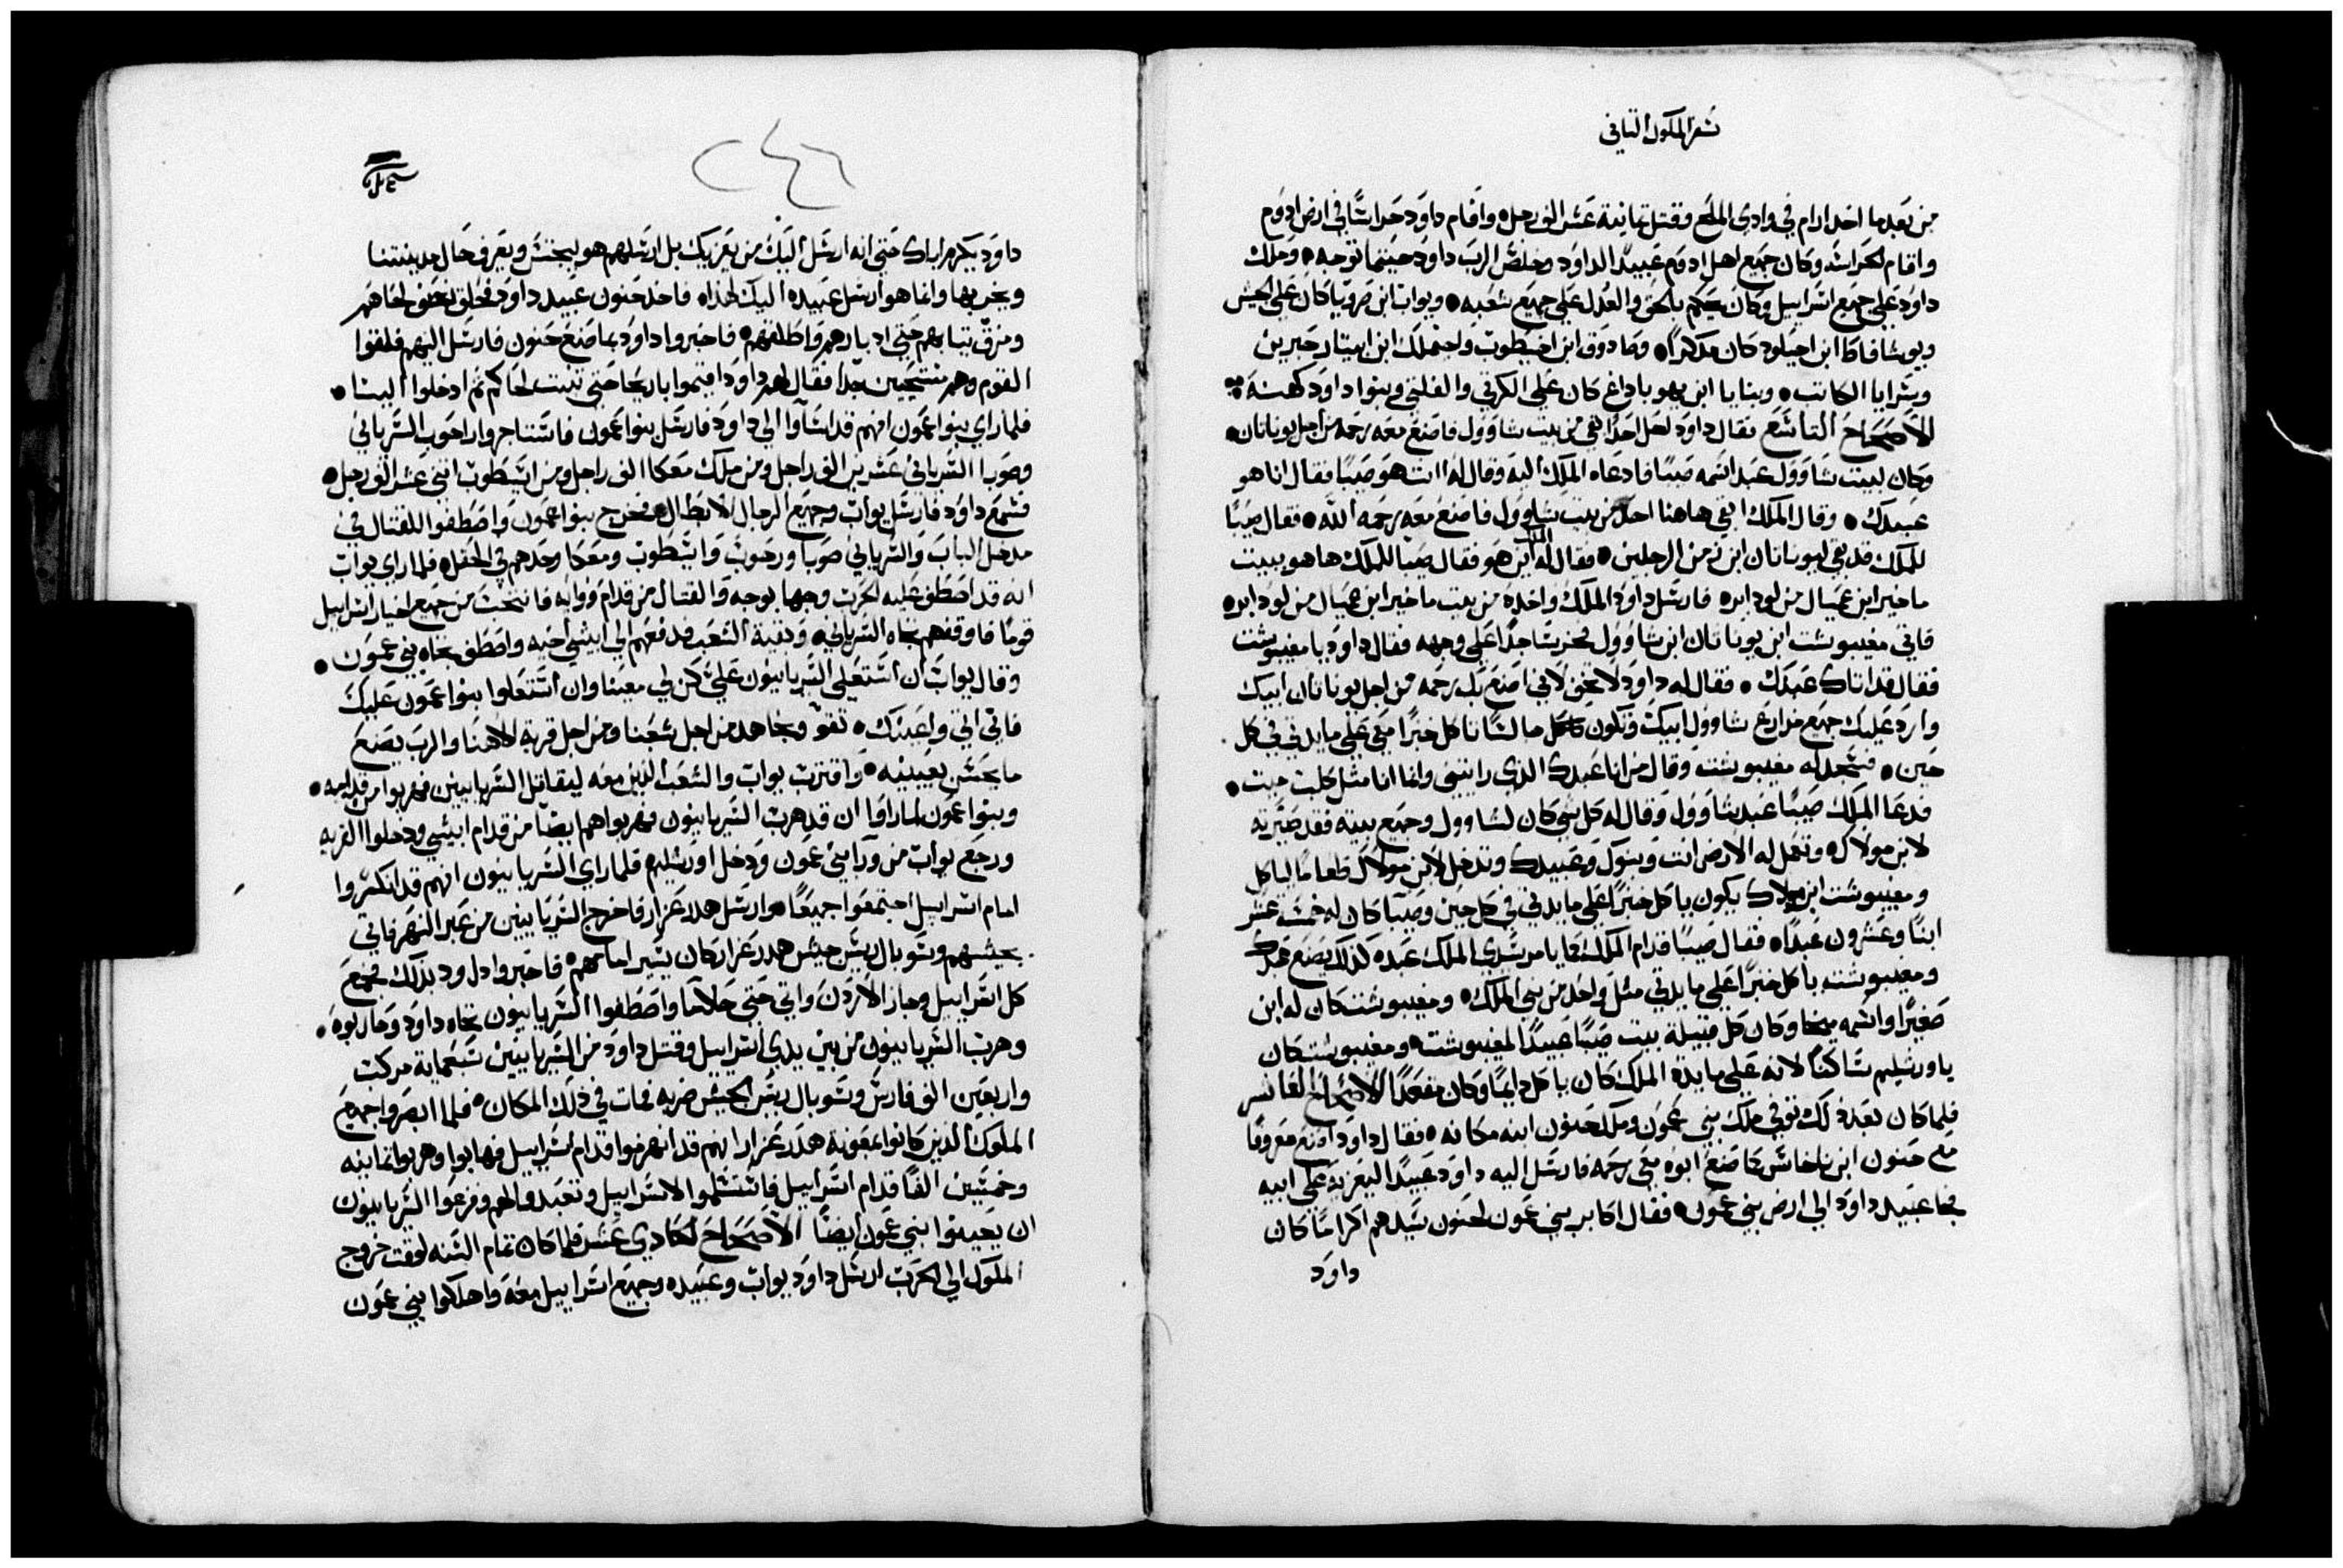 سفر الملوك الثاني
من بعد ما اخد ارام في وادي الملح وقتل تمانية عشر الف رجل واقام داود حراسًا في ارض ادوم
واقام الحراسه وكان جميع اهل ادوم عبيدًا لداود وخلص الرب داود حيثما توجه وملك
داود علي جميع اسراييل وكان يحكم بالحق والعدل علي جميع شعبه ويواب ابن صرويا كان علي الجيش
ويوشافاط ابن اخيلود كان مدكرًا وصادوق ابن اخيطوب واحيملك ابن ابيتار حبرين
وسرايا الكاتب وبنايا ابن يهوياداع كان علي الكرتي والفلتي وبنوا داود كهنه
الاصحاح التاسع فقال داود لعل احدًا بقي من بيت شاوول فاصنع معه رحمه من اجل يوناتان
وكان لبيت شاوول عبد اسمه صيبًا فادعاه الملك اليه وقال له انت هو صيبًا فقال انا هو
عبدك وقال الملك ابقي هاهنا احد من بيت شاوول فاصنع معه رحمه الله فقال صيبًا
للملك قد بقي ليوناتان ابن زمن الرجلين فقال له الملك اين هو فقال صيبا للملك ها هو ببيت
ماخير ابن عميال من لودابره فارسل داود الملك واخده من بيت ماخير ابن عميال من لودابره
فاتي مفيبوشت ابن يوناتان ابن شاوول فخر ساجدًا علي وجهه فقال داود يا مفيبوشت
فقال قد اتاك عبدك فقال له داود لا تخف لاني اصنع بك رحمه من اجل يوناتان ابيك
وارد عليك جميع مزارع شاوول ابيك وتكون تاكل خبزًا معي علي مايدتي في كل
حين فسجد له مفيبوشت وقال من انا عبدك الذي راينني وانما انا مثل كلب ميت
فدعا الملك صيبًا عبد شاوول وقال له كل شي كان لشاوول وجميع بيته فقد صيرته
لابن مولاك وتعمل له الارض انت وبنوك وعبيدك وتدخل لابن مولاك طعامًا لياكل
ومفيبوشت ابن مولاك يكون ياكل خبزًا علي مايدتي في كل حين وصيبًا كان له خمسة عشر
ابنًا وعشرون عبدًا فقال صيبًا قدام الملك كما يامر سيدي الملك عبده كذلك يصنع عبدك
ومفيبوشت ياكل خبزًا علي مايدتي مثل واحد من بني الملك ومفيبوشت كان له ابن
صغيرًا واسمه ميخا وكان كل قبيلة بيت صيبًا عبيدًا لمفيبوشت ومفيبوشت كان
ياورشليم ساكنًا لانه علي مايدة الملك كان ياكل دايمًا وكان مقعدًا الاصحاح العاشر
فلما كان بعد ذلك توفي ملك بني عمون وملك حنون ابنه مكانه فقال داود اصنع معروفًا
مع حنون ابن ناخاش كما صنع ابوه معي رحمه فارسل اليه داود عبيدًا ليعزيه علي ابيه
فجا عبيد داود الي ارض بني عمون فقال اكابر بني عمون لحنون سيدهم اكرامًا كان
داود
٢٤٦
داود يكرم اباك حتي انه ارسل اليك من يعزيك بل ارسلهم هو ليجتس ويعرف حال مدينتنا
ويخربها وانما هو ارسل عبيده اليك لهذا فاخد حنون عبيد داود فحلق نصف لحاهم
ومزق تيابهم حتي ادبارهم واطلقهم فاخبروا داود بما صنع حنون فارسل اليهم فلقوا
القوم وهم مستحيين جدًا فقال لهم داود اقيموا باريحا حتي تنبت لحاكم تم ادخلوا الينا
فلما راي بنوا عمون انهم قد اساوا الي داود فارسل بنوا عمون فاستاجروا راحوب السرياني
وصوبا السرياني عشرين الف راجل ومن ملك معكا الف راجل ومن ايشطوب اتني عشر الف رجل
فسمع داود فارسل يواب وجميع الرجال الابطال فخرج بنوا عمون واصطفوا للقتال في
مدخل الباب والسرياني صوبا ورحوب وايشطوب ومعكا وحدهم في الحقل فلما راي يواب
انه قد اصطف عليه الحرب وجها لوجه والقتال من قدام ووراه فانتخب من جميع اخيار اسراييل
قومًا فاوقفهم تجاه السرياني وبقية الشعب فدفعهم الي ابيشي اخيه واصطف تجاه بني عمون
وقال يواب ان استعلي السريانيون علي كن لي معينًا وان استعلوا بنوا عمون عليك
فاني اتي واعينك تقو ونجاهد من اجل شعبنا ومن اجل قرية الاهنا والرب يصنع
ما يحسن بعينيه واقترب يواب والشعب الذين معه ليقاتل السريانيين فهربوا من قدامه
وبنوا عمون لما راوا ان قد هرب السريانيون فهربواهم ايضًا من قدام ابيشي ودخلوا القريه
ورجع يواب من ورا بني عمون ودخل اورشليم فلما راي السريانيون انهم قد انكسروا
امام اسراييل اجتمعوا جميعًا وارسل هدد عزار فاخرج السريانيين من عبر النهر فاتي
بجيشهم وشوبال ريس جيش هدر عزار كان يسير امامهم فاخبروا داود بذلك فجمع
كل اسراييل وجاز الاردن واتي حتي حلاما واصطفوا السريانيون تجاه داود وحاربوه
وهرب السريانيون من بين يدي اسراييل وقتل داود من السريانيين سبعماية مركب
واربعين الف فارس وشوبال ريس الجيش ضربه فمات في ذلك المكان فلما ابصروا جميع
الملوك الذين كانوا بمعونة هدد عزار انهم قد انهزموا قدام اسراييل فهابوا وهربوا تمانيه
وخمسين الفًا قدام اسراييل فاستسلموا لاسراييل وتعبدوا لهم وفزعوا السريانيون
ان يعينوا بني عمون ايضًا الاصحاح الحادي عشر فلما كان تمام السنه لوقت خروج
الملوك الي الحرب ارسل داود يواب وعبيده وجميع اسراييل معه واهلكوا بني عمون